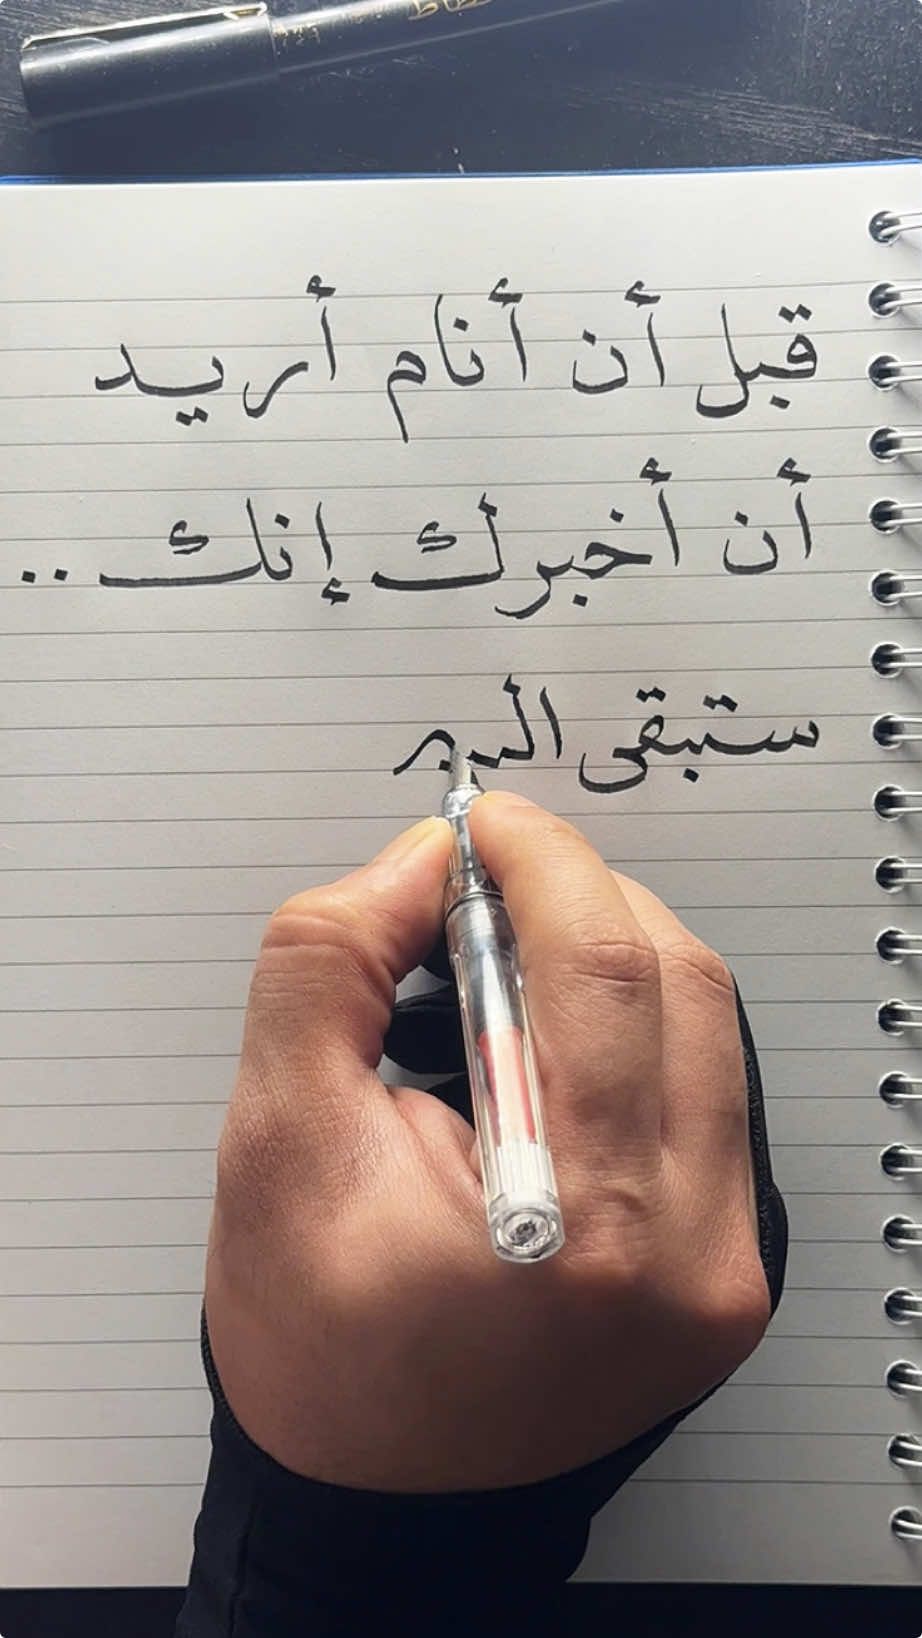 قبل أن أنام أريد
أن أخبرك إنك ..
ستبقى